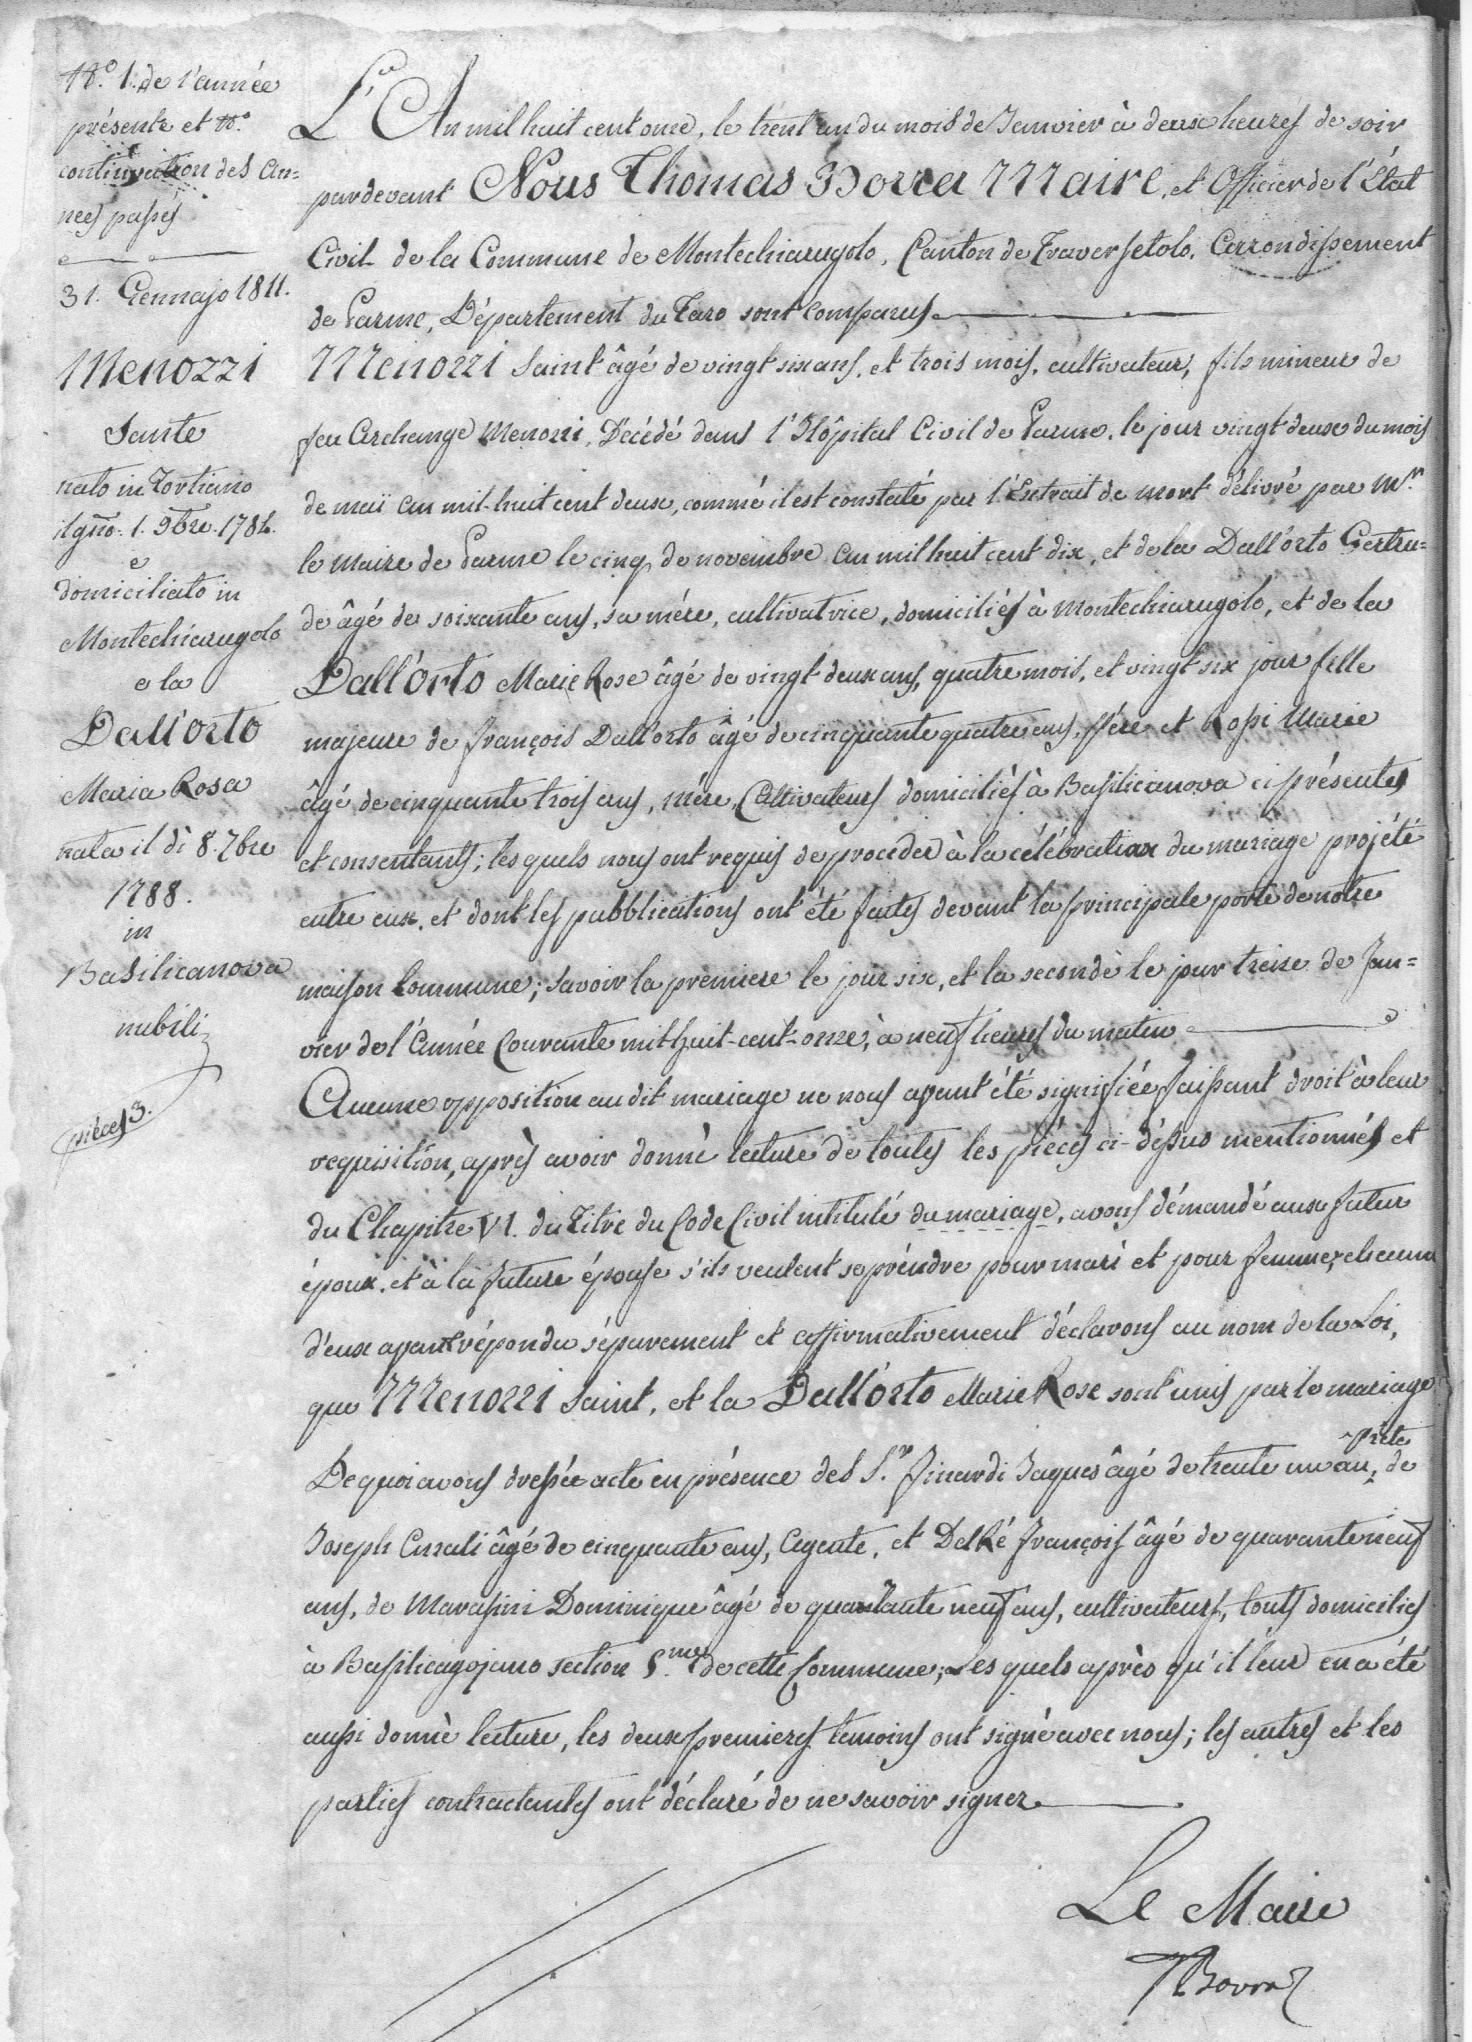 N.o 1. de l'année
présente et N.o
continuation des an=
nees passés
31. Gennajo 1811.
Menozzi
Sante
nato in Tortiano
il gño. 1. 9bre. 1784.
e
domiciliato in
Montechiarugolo
e la
Dall'orto
Maria Rosa
nata il dì 8. 7bre
1788.
in
Basilicanova
nubili
pièces 3.
L'An mil huit cent onze, le trent un du mois de Janvier à deux heures de soir
pardevant Nous Thomas Borra Maire, et Officier de l'État
Civil de la Commune de Montechiarugolo, Canton de Traversetolo, Arrondissement
de Parme, Département du Taro sont comparus
Menozzi Saint âgé de vingt six ans, et trois mois, cultivateur, fils mineur de
feu Archange Menozzi, Décédé dans l'Hôpital Civil de Parme, le jour vingt deux du mois
de maï an mil-huit cent deux, commé il est constaté par l'Extrait de mort délivré par M.r
le Maire de Parme le cinq de novembre an mil huit cent dix, et de la Dall'orto Gertru=
de âgé de soixante ans, sa mére, cultivatrice, domiciliés à Montechiarugolo, et de la
Dall'orto Marie Rose âgé de vingt deux ans, quatre mois, et vingt six jour fille
majeure de François Dall'orto âgé de cinquante quatre ans, Pére et Rossi Marie
âgé de cinquante trois ans, mére, Cultivateurs domiciliés à Basilicanova ci présentes
et consentants; les quels nous ont requis de proceder à la célébration du mariage projété
entre eux, et dont les pubblications ont été faites devant la principale porte de notre
maison Commune; savoir la premiere le jour six, et la secondè le jour treize de Jan=
vier de l'Année Courante mil-huit-cent-onze, à neuf heures du matin
Aucune opposition au dit mariage ne nous ayant été signifiée, faissant droit à leur
requisition, après avoir donnè lecture de toutes les piéces ci-déssus mentionnés et
du Chapitre VI. du Titre du Code Civil intitulé du mariage, avons démandé aux futur
époux, et à la future épouse s'ils veulent se préndre pour mari et pour femme, chacun
d'eux ayant répondu séparement et affirmativement déclarons au nom de la Loi,
que Menozzi Saint, et la Dall'orto Marie Rose sont unis par le mariage
De quoi avons dressée acte en présence des S.r Finardi Jaques âgé de trente un an, ^Prête de
Joseph Casali âgé de cinquante ans, Agente, et Del Ré François âgé de quarante neuf
ans, de Marassini Dominique âgé de quarante neuf ans, cultivateurs, touts domiciliés
à Basilicagojano section 5.me de cette Commune; Les quels après qu'il leur en a été
aussi donnè lecture, les deux premieres temoins ont signé avec nous; les autres et les
parties contractantes ont déclaré de ne savoir signer
Le Maire
TBorra